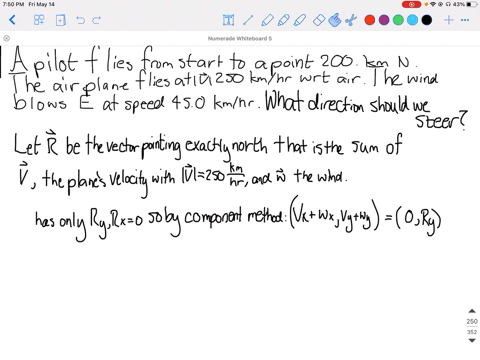 7:50 PM Fri May 14
43%
Numerade Whiteboard 5
A pilot flies from start to a point 200. km N.
The airplane flies at |v| 250 km/hr wrt air. The wind
blows E at speed 45.0 km/hr. What direction should we
steer?
Let R⃗ be the vector pointing exactly north that is the sum of
V⃗, the plane's velocity with |V⃗|=250 km/hr, and w⃗ the wind.
has only Ry, Rx=0 so by component method: (Vx+Wx, Vy+Wy) = (0, Ry)
250
352